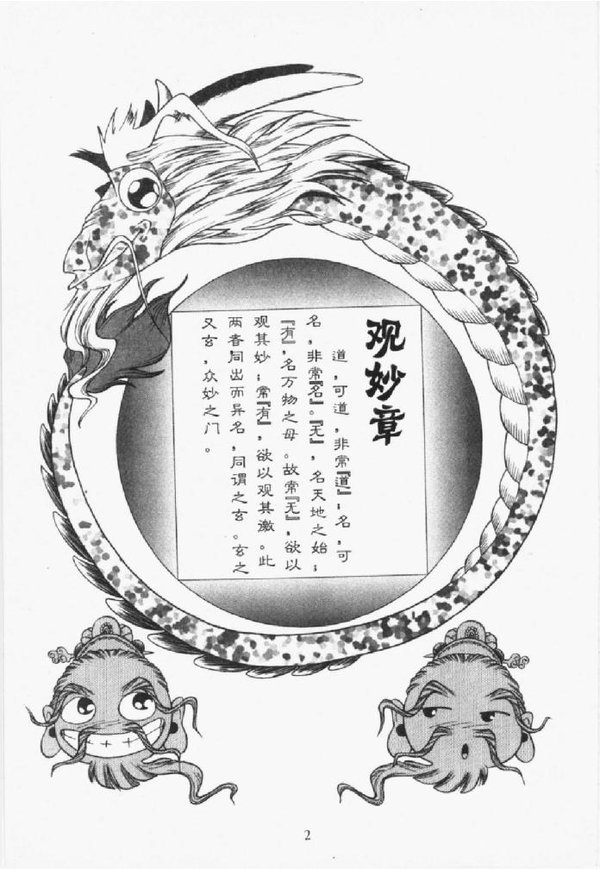 观妙章
道，可道，非常『道』；名，可
名，非常『名』。『无』，名天地之始；
『有』，名万物之母。故常『无』，欲以
观其妙；常『有』，欲以观其徼。此
两者同出而异名，同谓之玄。玄之
又玄，众妙之门。
2